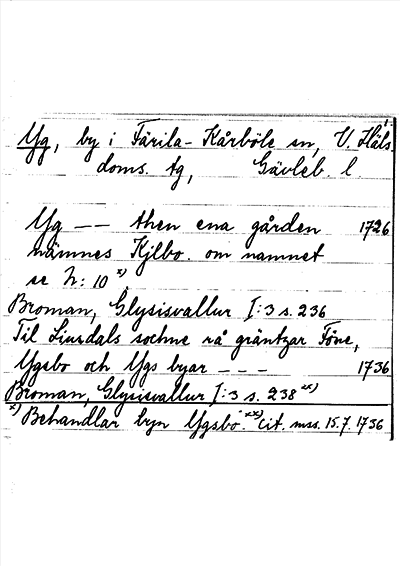 Yg, by i Färila-Kårböle sn, V. Häls.
doms. tg, Gävleb. l
Yg -- then ena gården 1726
nämnes Kjlbo. om namnet
se N: 10 x)
Broman, Glysisvallur I:3 s. 236
Til Liusdals sochne rå gräntzar Föne,
Ygsbo och Ygs byar --- 1736
Broman, Glysisvallur I:3 s. 238 xx)
x) Behandlar byn Ygsbo. xx) cit. mss. 15.7.1736